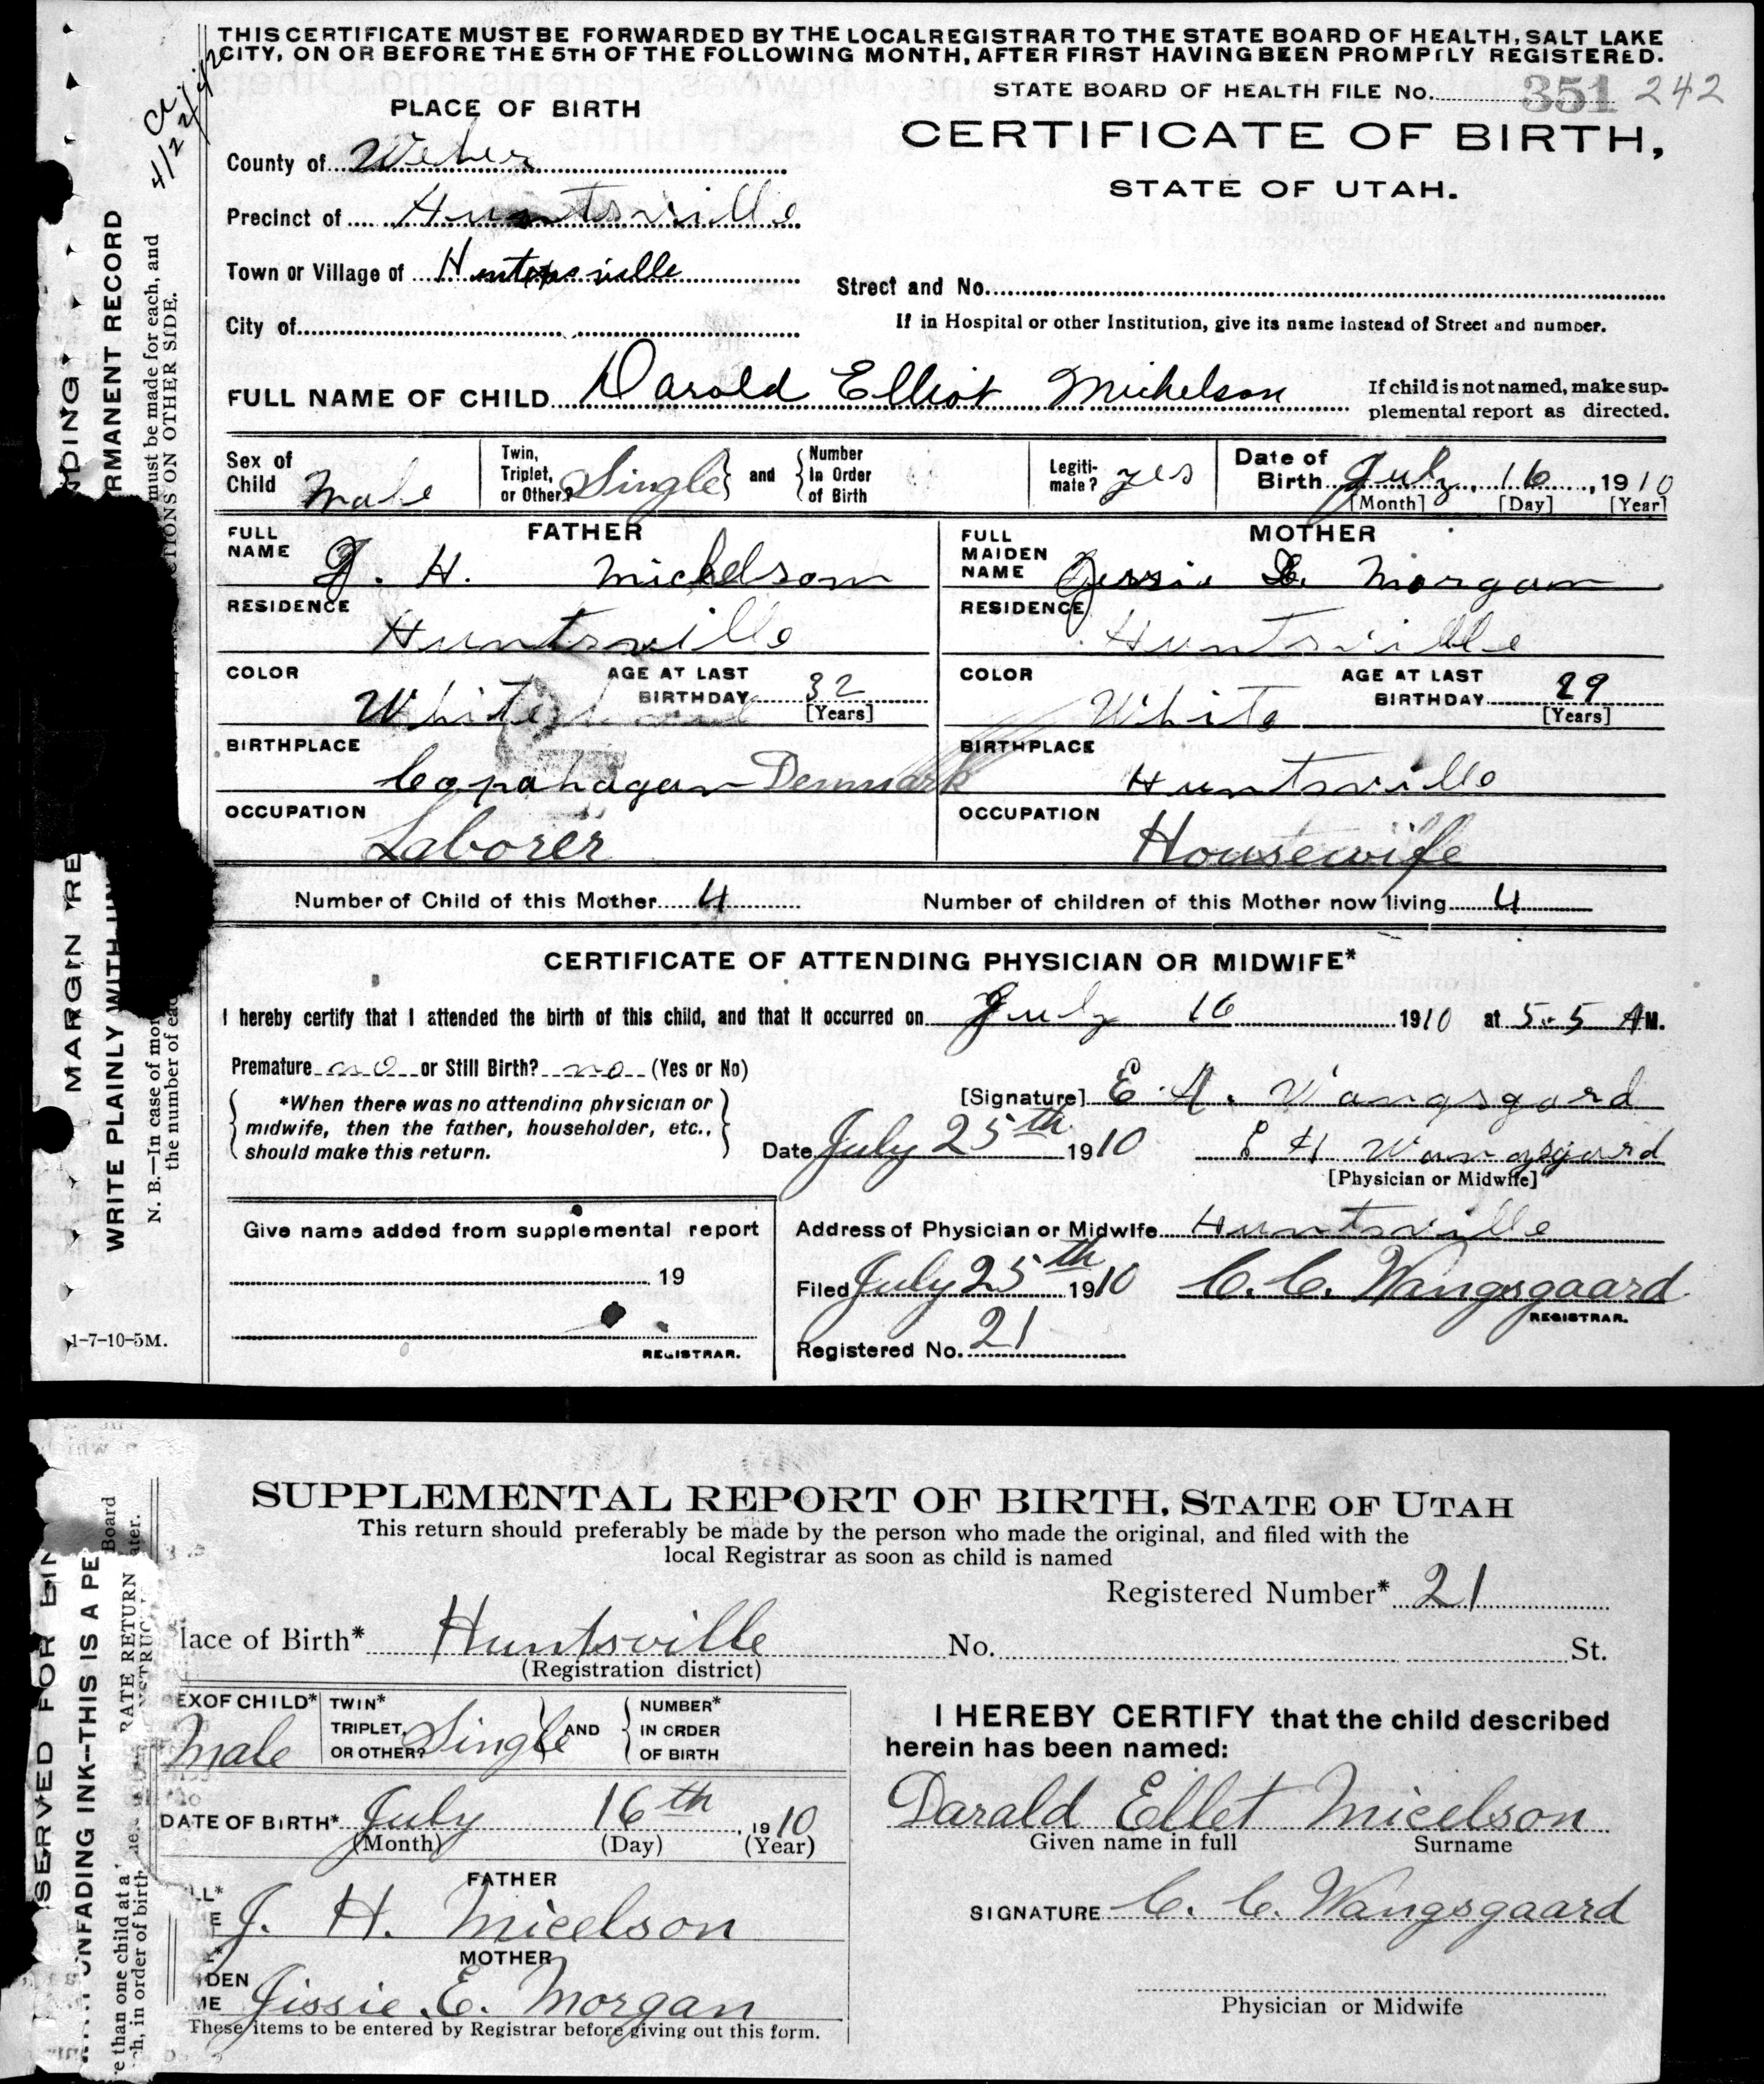 THIS CERTIFICATE MUST BE FORWARDED BY THE LOCAL REGISTRAR TO THE STATE BOARD OF HEALTH, SALT LAKE
CITY, ON OR BEFORE THE 5TH OF THE FOLLOWING MONTH, AFTER FIRST HAVING BEEN PROMPTLY REGISTERED.
STATE BOARD OF HEALTH FILE No. 351 242
PLACE OF BIRTH
CERTIFICATE OF BIRTH,
STATE OF UTAH.
County of Weber
Precinct of Huntsville
Town or Village of Huntsville
Street and No.
City of
If in Hospital or other Institution, give its name instead of Street and number.
FULL NAME OF CHILD Darold Elliot Michelson
If child is not named, make sup-
plemental report as directed.
Sex of Child Male
Twin, Triplet, or Other? Single and Number In Order of Birth
Legiti-mate? yes
Date of Birth July 16, 1910
[Month] [Day] [Year]
FATHER
MOTHER
FULL NAME J. H. Michelson
FULL MAIDEN NAME Jessie E. Morgan
RESIDENCE Huntsville
RESIDENCE Huntsville
COLOR White AGE AT LAST BIRTHDAY 32 [Years]
COLOR White AGE AT LAST BIRTHDAY 29 [Years]
BIRTHPLACE Copahagan Denmark
BIRTHPLACE Huntsville
OCCUPATION Laborer
OCCUPATION Housewife
Number of Child of this Mother 4
Number of children of this Mother now living 4
CERTIFICATE OF ATTENDING PHYSICIAN OR MIDWIFE*
I hereby certify that I attended the birth of this child, and that it occurred on July 16 1910 at 5.5 AM.
Premature no or Still Birth? no (Yes or No)
*When there was no attending physician or
midwife, then the father, householder, etc.,
should make this return.
[Signature] E. H. Wangsgard
Date July 25th 1910 E H Wangsgard
[Physician or Midwife]
Give name added from supplemental report
19
REGISTRAR.
Address of Physician or Midwife Huntsville
Filed July 25th 1910 C. C. Wangsgaard
REGISTRAR.
Registered No. 21
1-7-10-5M.
4/22/42
NDING
RMANENT RECORD
must be made for each, and
CTIONS ON OTHER SIDE.
MARGIN RE
WRITE PLAINLY WITH UN
N. B.—In case of mor
the number of eac
SUPPLEMENTAL REPORT OF BIRTH, STATE OF UTAH
This return should preferably be made by the person who made the original, and filed with the
local Registrar as soon as child is named
Registered Number* 21
lace of Birth* Huntsville No. St.
(Registration district)
EX OF CHILD* Male
TWIN* TRIPLET, OR OTHER? Single AND NUMBER* IN ORDER OF BIRTH
DATE OF BIRTH* July 16th, 1910
(Month) (Day) (Year)
FATHER
J. H. Micelson
MOTHER
Jissie E. Morgan
These items to be entered by Registrar before giving out this form.
I HEREBY CERTIFY that the child described
herein has been named:
Darald Ellet Micelson
Given name in full Surname
SIGNATURE C. C. Wangsgaard
Physician or Midwife
SERVED FOR BIN
UNFADING INK--THIS IS A PE
RATE RETURN
e than one child at a
h, in order of birth
Board
ater.